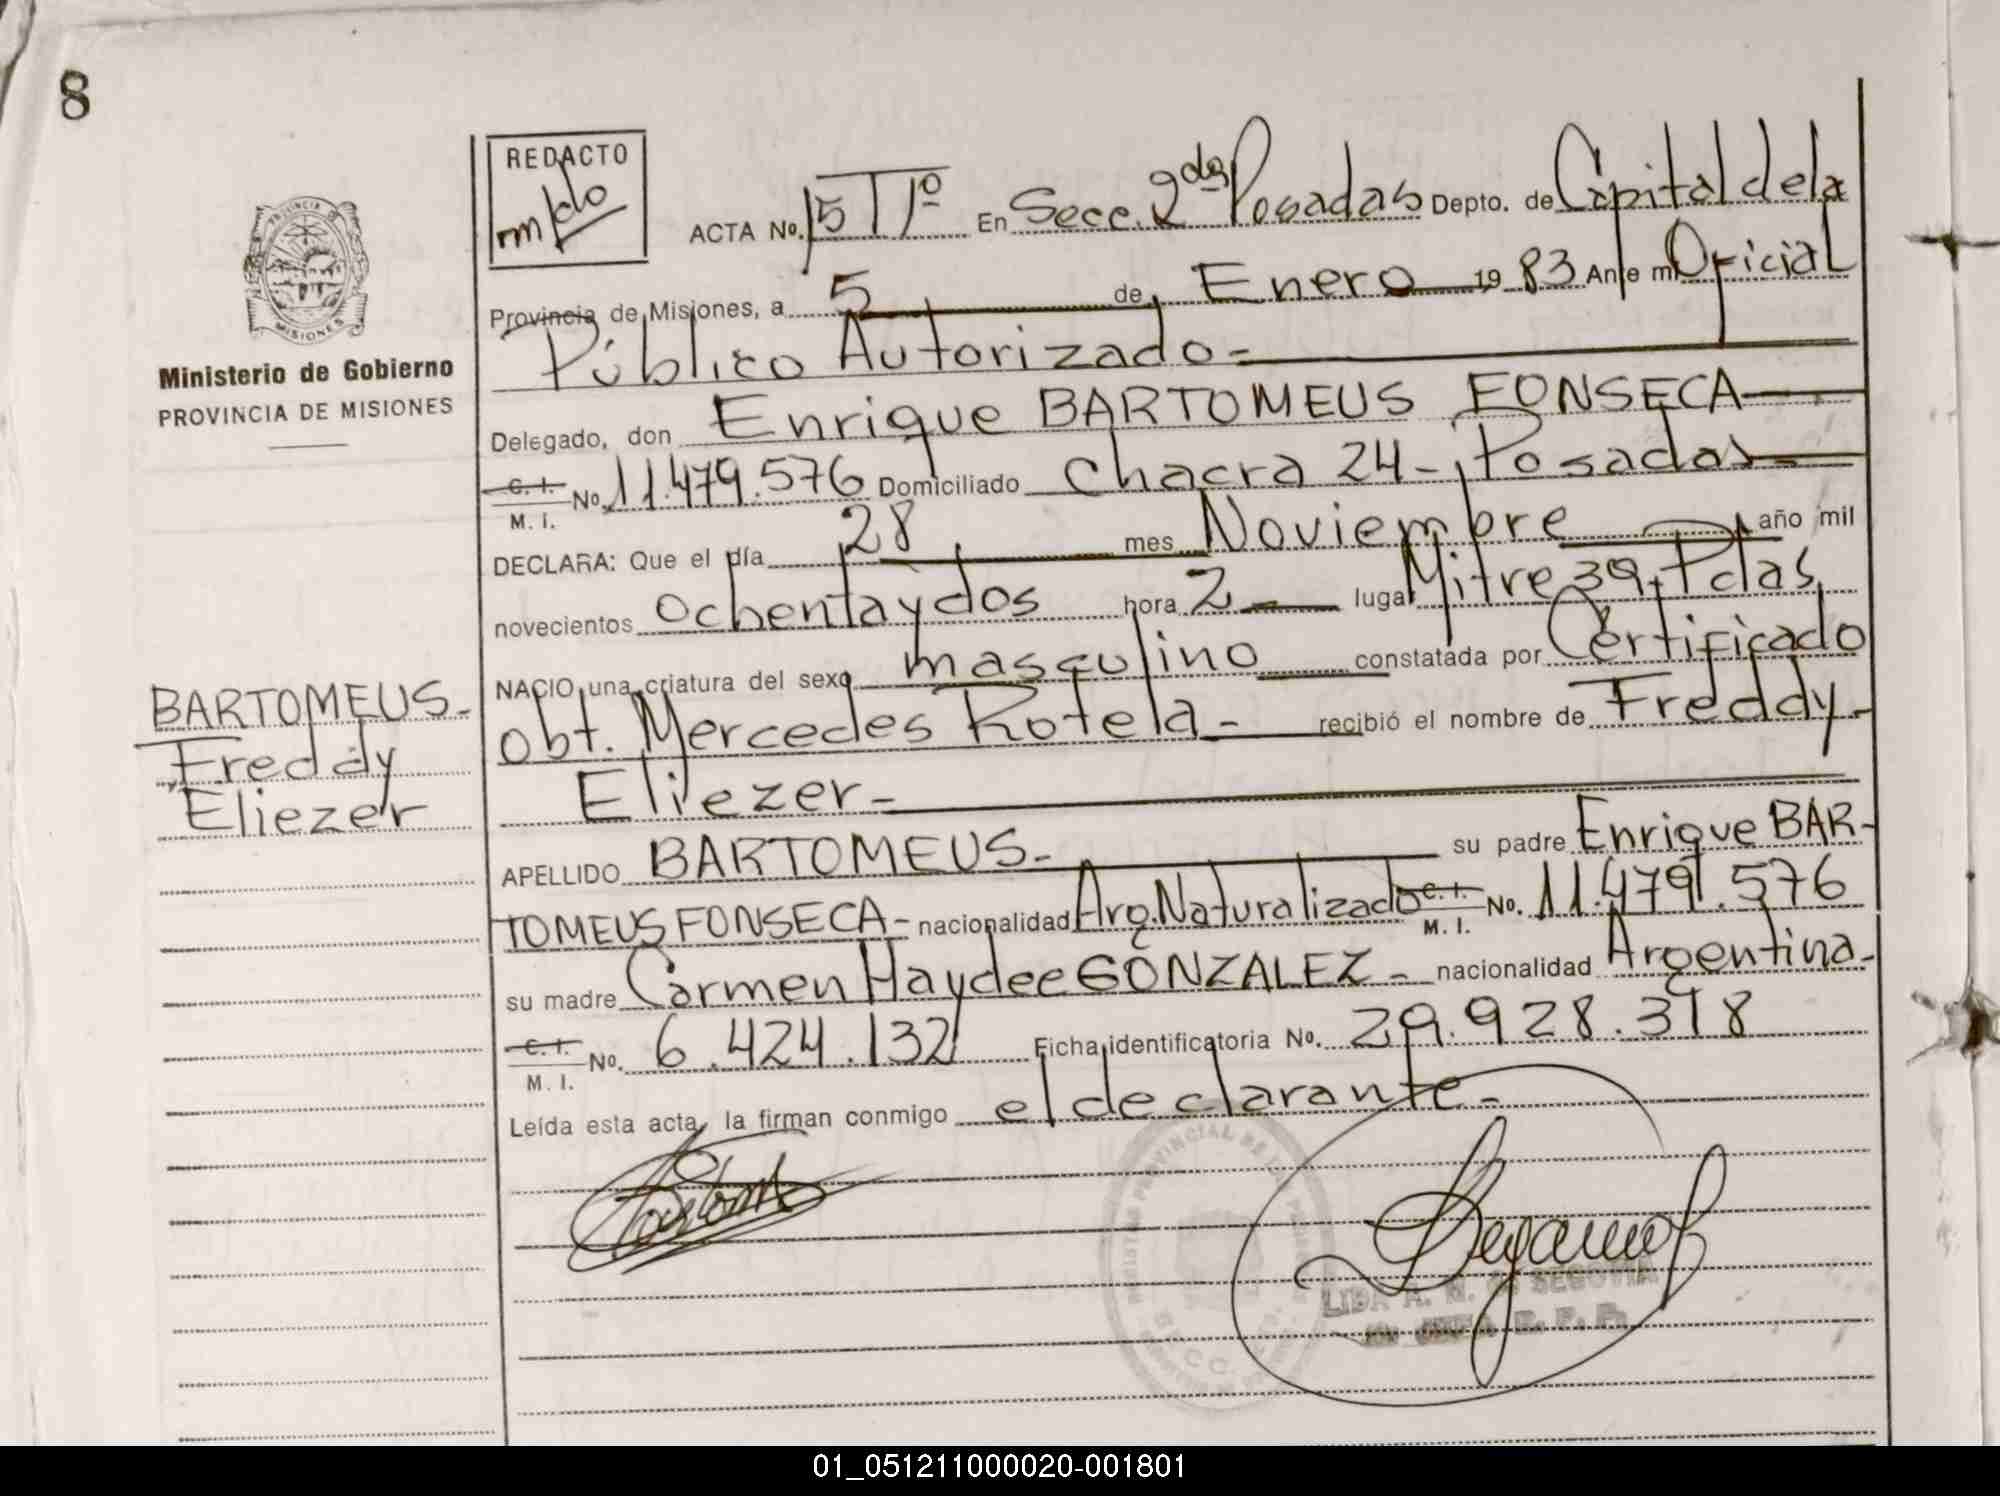 8
REDACTO
ACTA No. 15 Tº En Secc. 2da Posadas Depto. de Capital de la
Provincia de Misiones, a 5 de Enero 19 83 Ante mi Oficial
Público Autorizado=
Ministerio de Gobierno
PROVINCIA DE MISIONES
MISIONES
Delegado, don Enrique BARTOMEUS FONSECA
C. I. M. I. No. 11.479.576 Domiciliado Chacra 24-, Posadas
DECLARA: Que el día 28 mes Noviembre año mil
novecientos ochentaydos hora 2 lugar Mitre 39, Pdas,
NACIO una criatura del sexo masculino constatada por Certificado
Obt. Mercedes Rotela- recibió el nombre de Freddy-
Eliezer-
BARTOMEUS-
Freddy
Eliezer
APELLIDO BARTOMEUS- su padre Enrique BAR-
TOMEUS FONSECA- nacionalidad Arg. Naturalizado C. I. M. I. No. 11.479.576
su madre Carmen Haydee GONZALEZ- nacionalidad Argentina-
C. I. M. I. No. 6.424.132 Ficha identificatoria No. 29.928.318
Leída esta acta, la firman conmigo el declarante-
LIDA A. M. de SEGOVIA
01_051211000020-001801